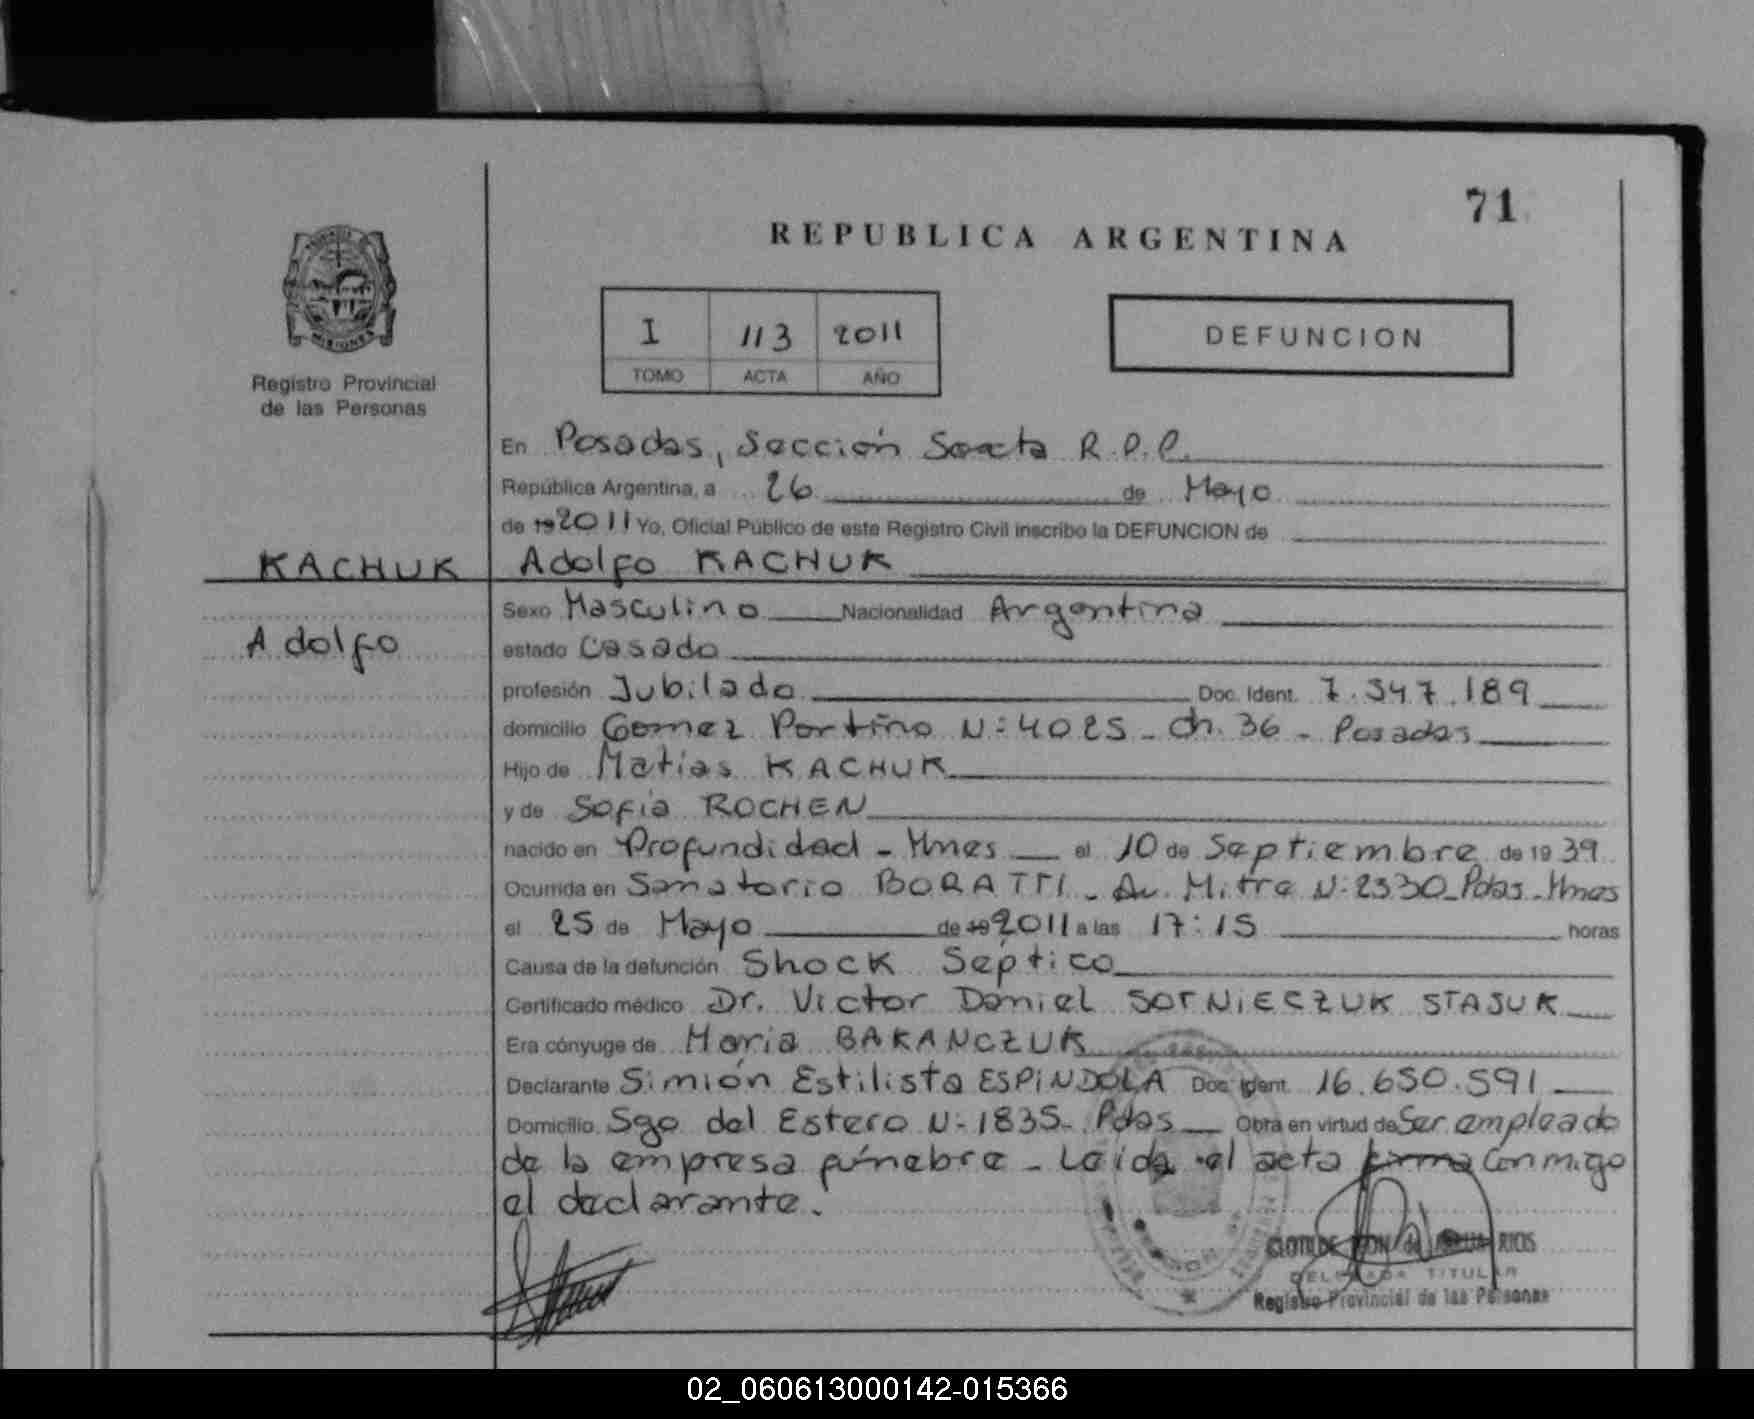 71
REPUBLICA ARGENTINA
I 113 2011
TOMO ACTA AÑO
DEFUNCION
MISIONES
Registro Provincial
de las Personas
En Posadas, Sección Sexta R.P.P.
República Argentina, a 26 de Mayo
de 19 2011 Yo, Oficial Público de este Registro Civil inscribo la DEFUNCION de
KACHUK Adolfo KACHUK
Sexo Masculino Nacionalidad Argentina
Adolfo estado Casado
profesión Jubilado Doc. Ident. 7.547.189
domicilio Gomez Portiño N:4025 - Ch. 36 - Posadas
Hijo de Matias KACHUK
y de Sofia ROCHEN
nacido en Profundidad - Mnes el 10 de Septiembre de 19 39
Ocurrida en Sanatorio BORATTI - Av. Mitre N:2330 - Pdas - Mnes
el 25 de Mayo de 19 2011 a las 17:15 horas
Causa de la defunción Shock Séptico
Certificado médico Dr. Victor Daniel SOTNIECZUK STASUK
Era cónyuge de Maria BAKANCZUK
Declarante Simión Estilista ESPINDOLA Doc Ident. 16.650.591
Domicilio Sgo del Estero N:1835 - Pdas Obra en virtud de Ser empleado
de la empresa fúnebre - Leida el acta firma Conmigo
el declarante.
CLOTILDE RIOS
DELEGADA TITULAR
Registro Provincial de las Personas
02_060613000142-015366